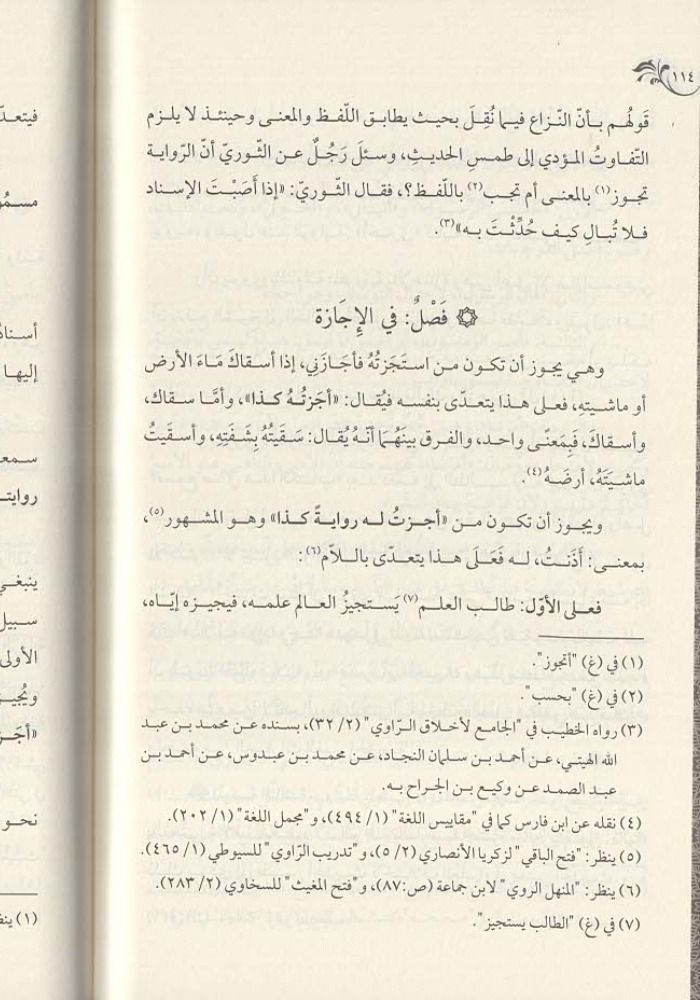 ١١٤
قَولُهُم بأنّ النّزاع فيما نُقِلَ بحيث يطابق اللّفظ والمعنى وحينئذ لا يلزم
التّفاوتُ المؤدي إلى طمسِ الحديثِ، وسئلَ رَجُلٌ عن الثّوريّ أنّ الرّواية
تجوز(١) بالمعنى أم تجب(٢) باللّفظ؟، فقال الثّوريّ: «إذا أَصَبْتَ الإسناد
فلا تُبالِ كيف حُدِّثْتَ به»(٣).
فَصْلٌ: في الإِجَازة
وهي يجوز أن تكون من استَجَزتُهُ فأجَازَنِي، إذا أسقاكَ مَاءَ الأرض
أو ماشيتهِ، فعلى هذا يتعدّى بنفسه فيُقال: «أجَزتُهُ كذا»، وأمَّا سقاك،
وأسقاكَ، فَبِمَعنًى واحد، والفرق بينَهُمَا أنّهُ يُقال: سَقَيتُهُ بِشَفَتِهِ، وأسقَيتُ
ماشيَتَهُ، أرضَهُ(٤).
ويجوز أن تكون من «أجزتُ له روايةً كذا» وهو المشهور(٥)،
بمعنى: أَذَنتُ، له فَعَلَى هذا يتعدّى باللاّم(٦):
فعلى الأوّل: طالب العلم(٧) يَستجيزُ العالم علمه، فيجيزه إيّاه،
(١) في (غ) "أتجوز".
(٢) في (غ) "بحسب".
(٣) رواه الخطيب في "الجامع لأخلاق الرّاوي" (٢/ ٣٢)، بسنده عن محمد بن عبد
الله الهيتي، عن أحمد بن سلمان النجاد، عن محمد بن عبدوس، عن أحمد بن
عبد الصمد عن وكيع بن الجراح به.
(٤) نقله عن ابن فارس كما في "مقاييس اللغة" (١/ ٤٩٤)، و"مجمل اللغة" (١/ ٢٠٢).
(٥) ينظر: "فتح الباقي" لزكريا الأنصاري (٢/ ٥)، و"تدريب الرّاوي" للسيوطي (١/ ٤٦٥).
(٦) ينظر: "المنهل الروي" لابن جماعة (ص:٨٧)، و"فتح المغيث" للسخاوي (٢/ ٢٨٣).
(٧) في (غ) "الطالب يستجيز".
إليها
ينبغي
الأولى
نحو
(١)